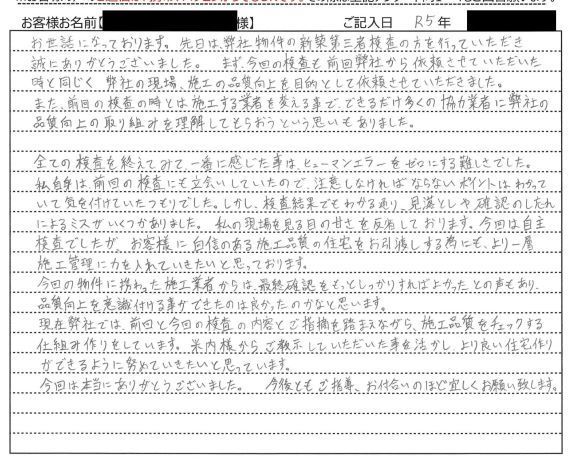 お客様お名前【 様】 ご記入日 R5年
お世話になっております。先日は、弊社物件の新築第三者検査の方を行っていただき
誠にありがとうございました。まず、今回の検査も前回弊社から依頼させていただいた
時と同じく弊社の現場、施工の品質向上を目的として依頼させていただきました。
また、前回の検査の時とは施工する業者を変える事で、できるだけ多くの協力業者に弊社の
品質向上の取り組みを理解してもらおうという思いもありました。
全ての検査を終えてみて、一番に感じた事は、ヒューマンエラーをゼロにする難しさでした。
私自身は前回の検査にも立会いしていたので、注意しなければならないポイントはわかって
いて気を付けていたつもりでした。しかし、検査結果でもわかる通り、見落としや確認のしたれ
によるミスがいくつかありました。私の現場を見る目の甘さを反省しております。今回は自主
検査でしたが、お客様に自信のある施工品質の住宅をお引渡しする為にも、より一層
施工管理に力を入れていきたいと思っております。
今回の物件に携わった施工業者からは、最終確認をもっとしっかりすればよかったとの声もあり、
品質向上を意識付ける事ができたのは良かったのかなと思います。
現在弊社では、前回と今回の検査の内容とご指摘を踏まえながら、施工品質をチェックする
仕組み作りをしています。米内様からご教示していただいた事を活かし、より良い住宅作り
ができるように努めていきたいと思っています。
今回は本当にありがとうございました。 今後ともご指導、お付合いのほど宜しくお願い致します。